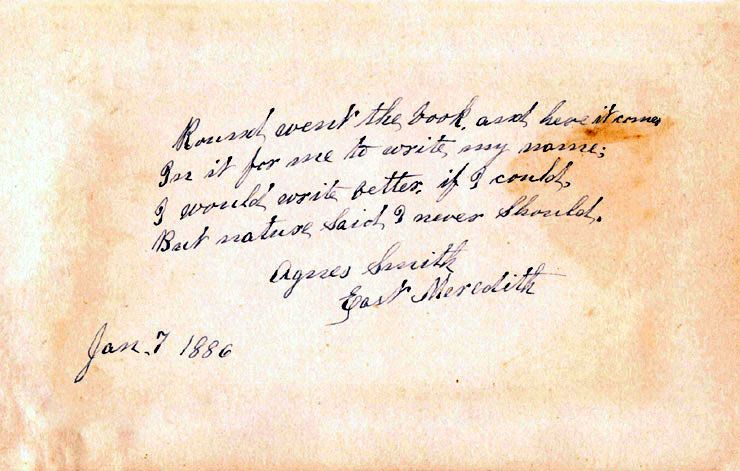 Round went the book, and here it comes
In it for me to write my name;
I would write better, if I could,
But nature said I never should.
Agnes Smith
East Meredith
Jan. 7 1886